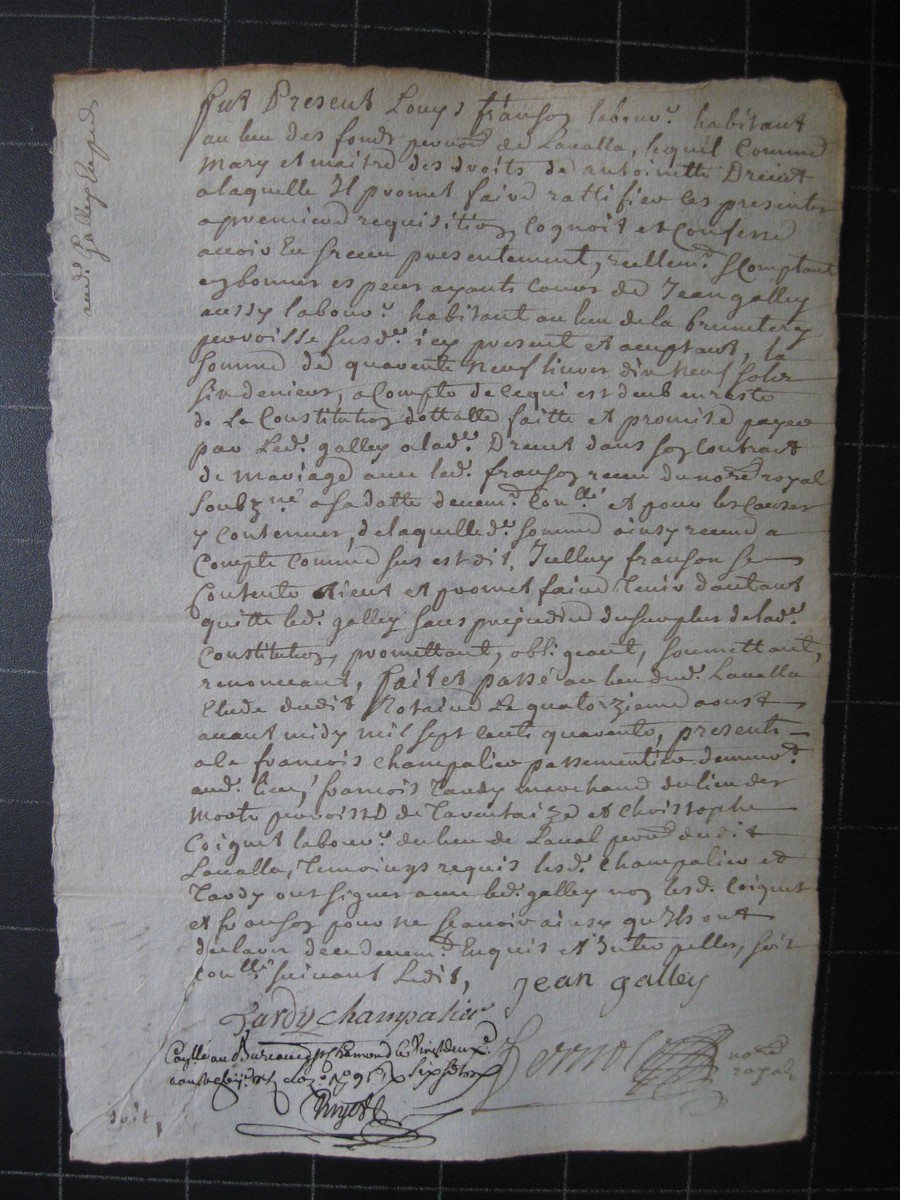 fut Present Louys franson labour. habitant
au lieu des fonds paroisse de Lavalla, lequel Comme
Mary et maitre des droits de antoinette Drevet
a laquelle Il promet faire rattifier les presentes
a premiere requisition, Cognoit et Confesse
avoir Eu et receu presentement, reellemt. & Comptant
en bonnes especes ayants cours de Jean galley
aussy labour. habitant au lieu de la
parroisse susde. icy present et aceptant, la
somme de quarente neuf livres dix neuf sols
six deniers, a Compte de ce qui est deub en reste
de La Constitution dottalle faitte et promise payer
par Led. galley a lade. Drevet dans son Contract
de Mariage avec led. franson receu du nore. royal
soubzne. a sa datte deuemt. Conllé. et pour les causes
y contenues, de laquelle de. somme ainsy receue a
Compte Comme sus est dit, Icelluy franson se
Contente tient et promet faire tenir d'autant
quitte led. galley sans prejudice du surplus de lade.
Constitution, promettant, obligeant, soumettant,
renonceant, fait et passé au lieu dud. Lavalla
Etude dudit Notaire Le quatorzieme aoust
avant midy mil sept cents quarente, presents
a ce francois Champalier passementier demeurt.
aud. lieu, francois Tardy marchand du lieu des
Monts paroisse de Tarentaize et Christophe
Coignet labour. du lieu de Laval parre. dudit
Lavalla, Temoings requis lesd. Champalier et
Tardy ont signes avec led. galley non lesd. Coignet
et franson pour ne scavoir ainsy qu'Ils ont
declaré de ce deuemt. Enquis et Interpellés, soit
conllé. suivant Ledit,
Jean galley
Tardy Champalier
nore.
royal